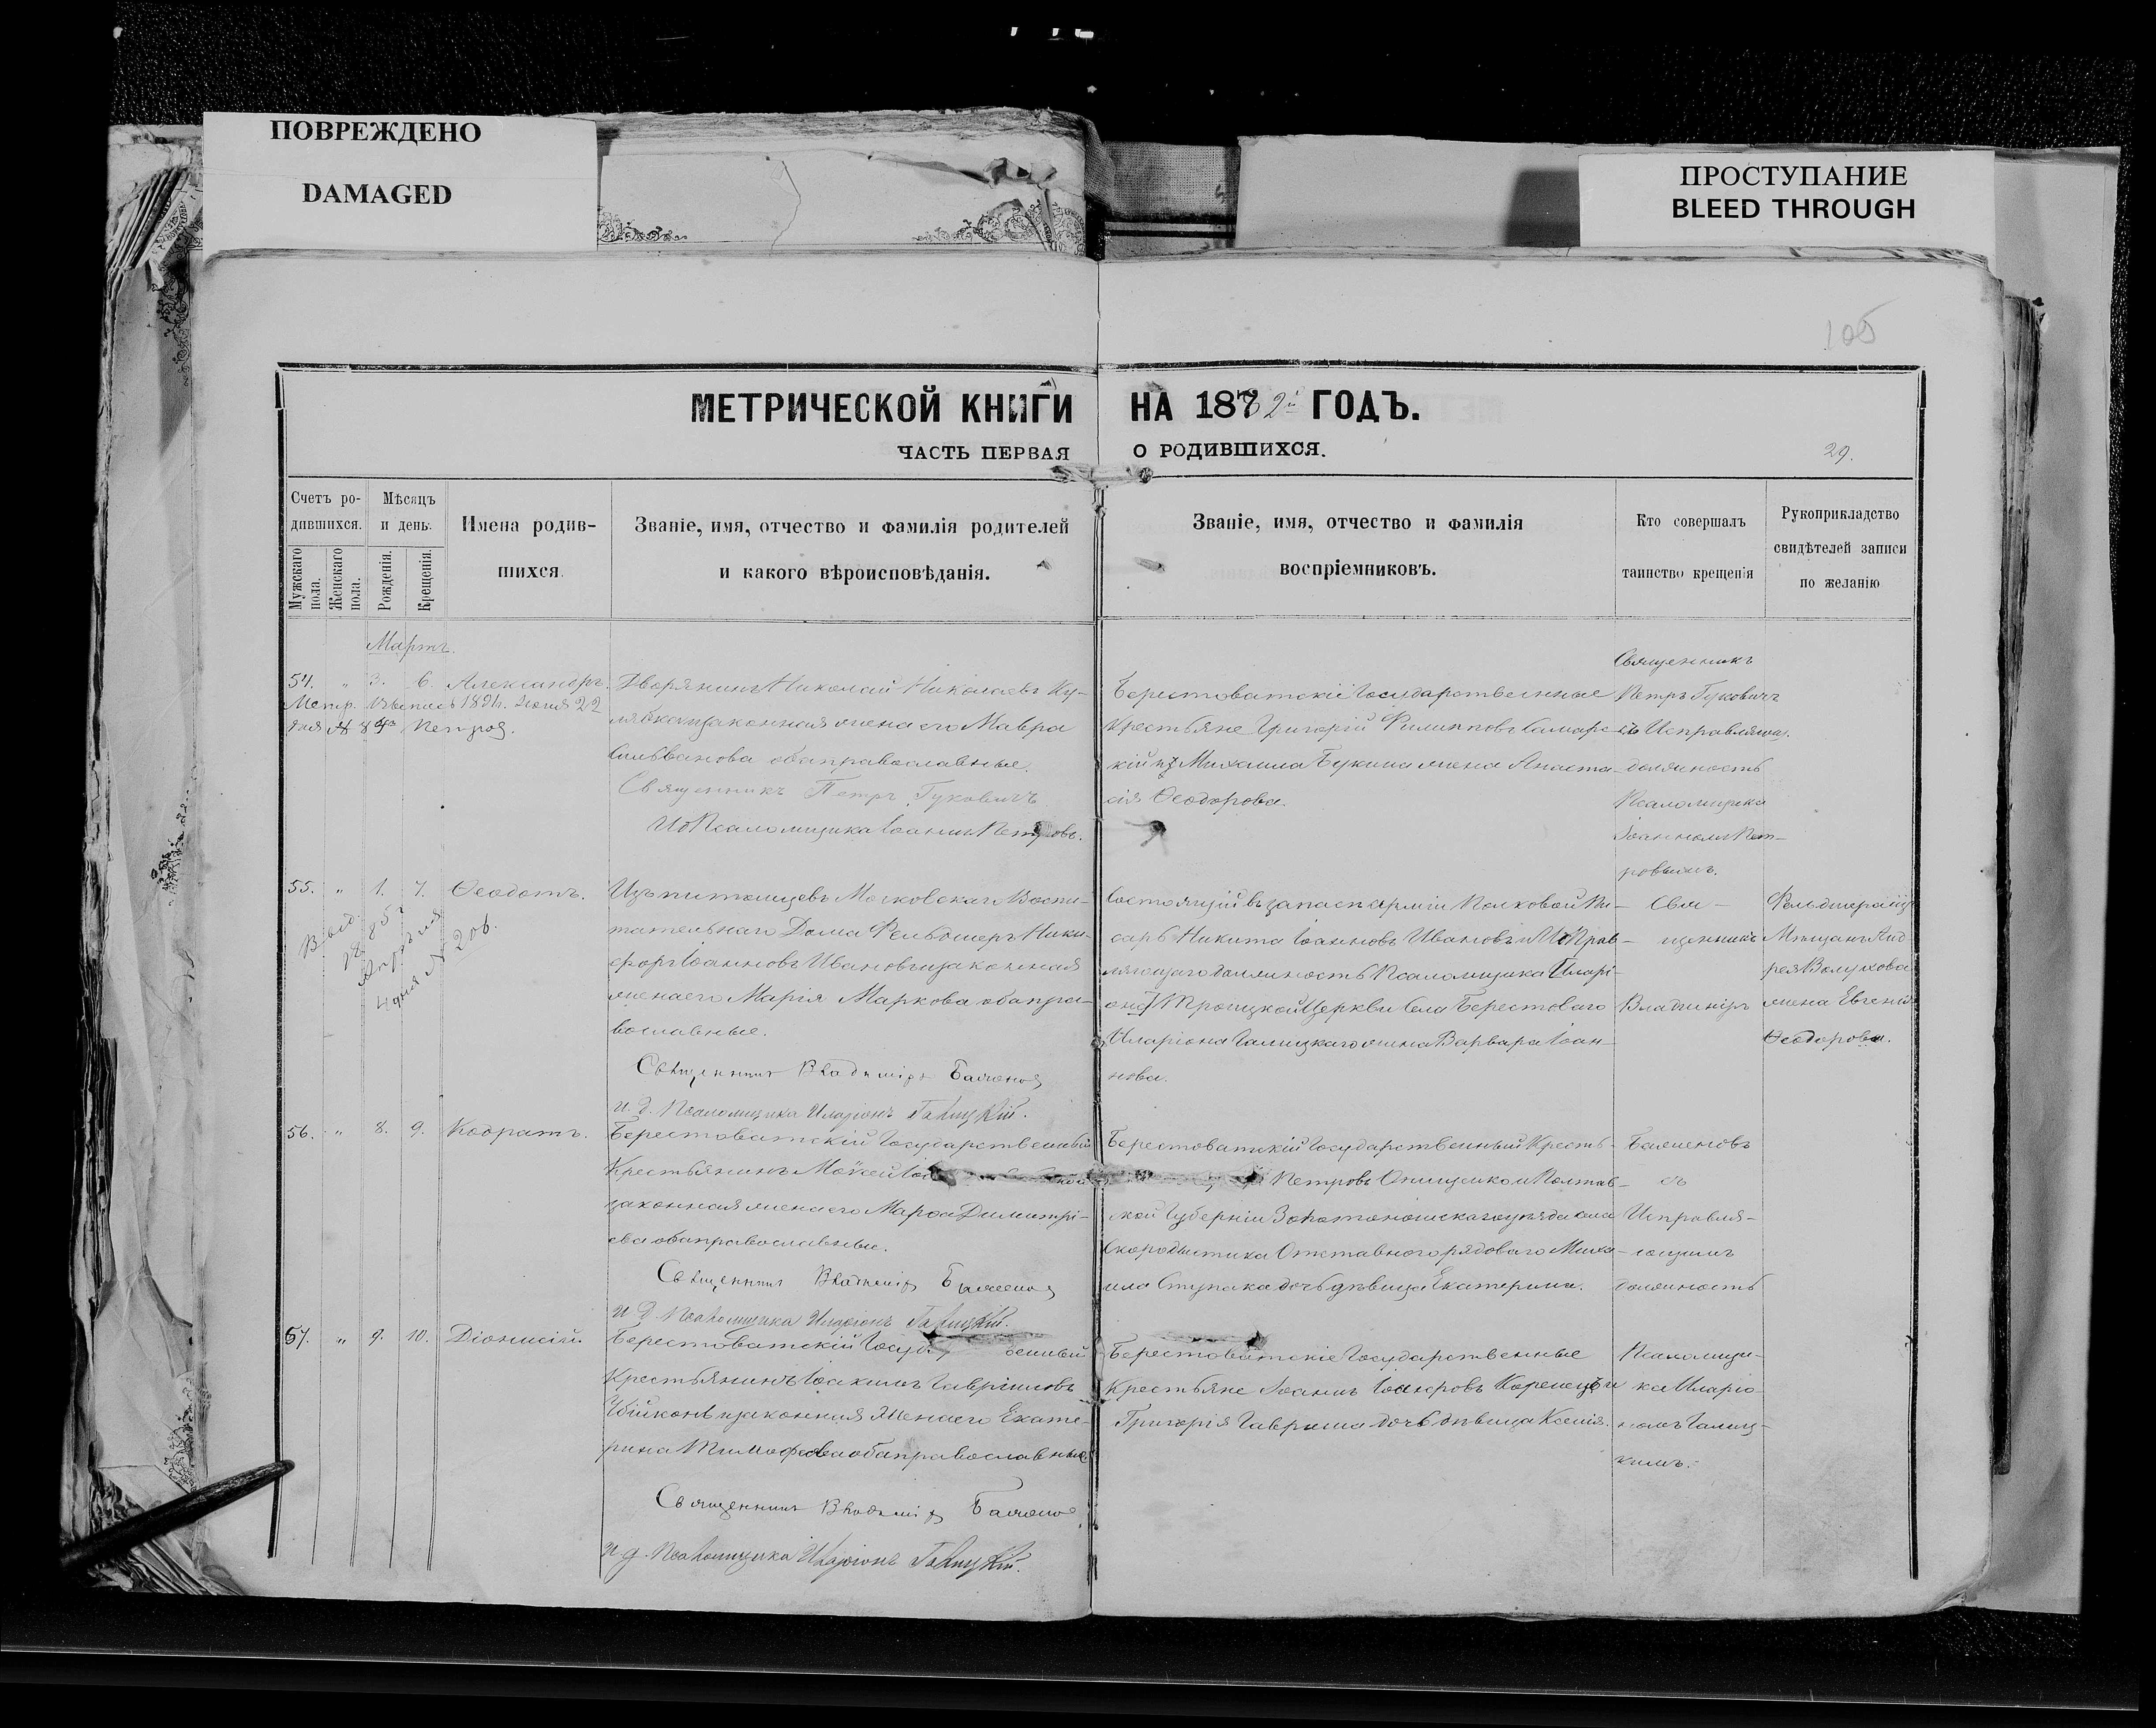 ПОВРЕЖДЕНО
DAMAGED
ПРОСТУПАНИЕ
BLEED THROUGH
105
МЕТРИЧЕСКОЙ КНИГИ НА 1882й ГОДЪ.
ЧАСТЬ ПЕРВАЯ О РОДИВШИХСЯ.
29.
Счетъ ро-
дившихся.
Мужскаго пола.
Женскаго пола.
Мѣсяцъ
и день.
Рожденія.
Крещенія.
Имена родив-
шихся.
Званіе, имя, отчество и фамилія родителей
и какого вѣроисповѣданія.
Званіе, имя, отчество и фамилія
воспріемниковъ.
Кто совершалъ
таинство крещенія
Рукоприкладство
свидѣтелей записи
по желанію
Мартъ.
54. " 3. 6. Александръ.
Метр. выпись 1891. Іюня 22
дня №
Дворянинъ Николай Николаевъ Ку-
и законная жена его Мавра
Сильванова оба православные.
Священникъ Петръ Гуковичъ
ИД Псаломщика Іоаннъ Петровъ.
Берестоватскіе Государственные
Крестьяне Григорій Филипповъ Самарс-
кій и Михаила Букина жена Анаста-
сія Ѳеодорова.
Священникъ
Петръ Гуковичъ
съ Исправляющ.
должность
Псаломщика
Іоанномъ Пет-
ровымъ.
55. " 1. 7. Ѳеодотъ.
Выд.
Апрѣля
4 дня № 206.
Изъ питомцевъ Московскаго Воспи-
тательнаго Дома Фельдшеръ Ники-
форъ Іоанновъ Ивановъ и законная
жена его Марія Маркова оба пра-
вославные.
Священникъ Владиміръ Баженов
и. д. Псаломщика Иларіонъ Галицкій.
Состоящій въ запасѣ арміи Полковой Пи-
сарь Никита Іоанновъ Ивановъ и Исправ-
ляющаго должность Псаломщика
Троицкой Церкви Села Берестоваго
Иларіона Галицкаго жена Варвара Іоан-
нова.
Свя-
щенникъ
Владиміръ
Фельдшерица
Мѣщанъ Анд
рея Волухова
жена Евгенія
Ѳеодорова.
56. " 8. 9. Кодратъ.
Берестоватскій Государственный
Крестьянинъ Моѵсей
законная жена его Марѳа Димитрі-
ева оба православные.
Священникъ Владиміръ Баженов
и. д. Псаломщика Иларіонъ Галицкій.
Берестоватскій Государственный Кресть-
Петровъ Онищенко и Полтав-
ской Губерніи Золотоношскаго уѣзда села
Скородистика Отставного рядоваго Миха-
ила Ступака дочь дѣвица Екатерина.
Баженовъ
съ
Исправля-
ющимъ
должность
57. " 9. 10. Діонисій.
Берестоватскій Госуд енный
Крестьянинъ Іоакимъ Гавріиловъ
и законная жена его Екате-
рина Тимофеева оба православные
Священникъ Владиміръ Баженов
и. д. Псаломщика Иларіонъ Галицкій.
Берестоватскіе Государственные
Крестьяне Іоаннъ Коренецъ и
Григорія Гавриша дочь дѣвица Ксенія.
Псаломщи-
ка Иларіо-
номъ Галиц-
кимъ.